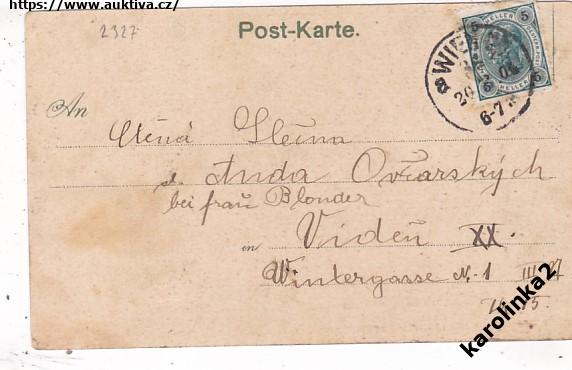 https://www.auktiva.cz/
2327
Post-Karte.
5 HELLER 5
WIEN
20
6-7
5 HELLER 5
An
Ctěná Slečna
s. Anda Ovčarských
bei frau Blonder
in Videň XX.
Wintergasse N. 1 III 27
karolinka2